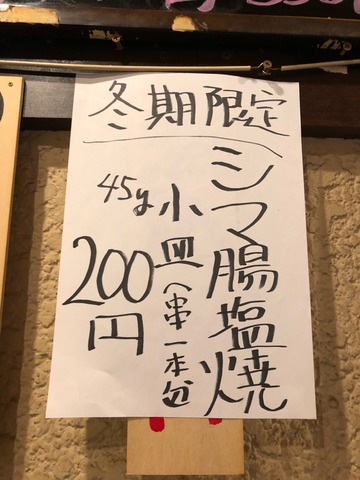 冬期限定
シマ腸塩焼
小皿(串一本分
45g
200円